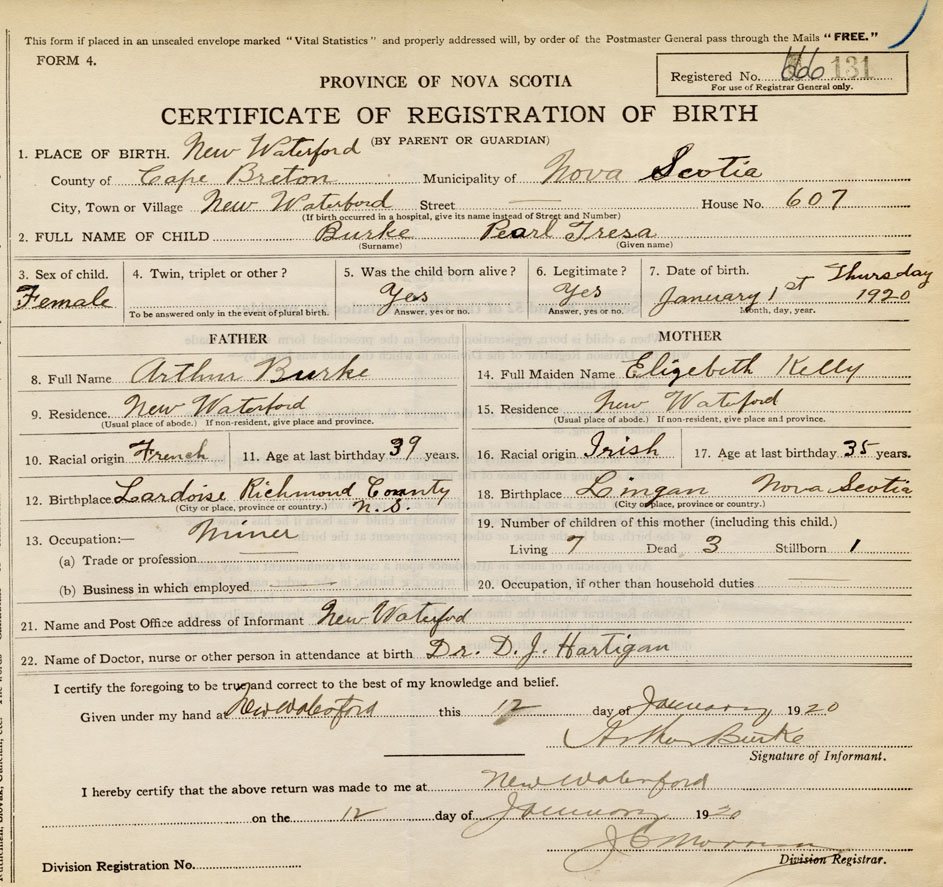 This form if placed in an unsealed envelope marked "Vital Statistics" and properly addressed will, by order of the Postmaster General pass through the Mails "FREE."
FORM 4.
Registered No. 666 131
For use of Registrar General only.
PROVINCE OF NOVA SCOTIA
CERTIFICATE OF REGISTRATION OF BIRTH
(BY PARENT OR GUARDIAN)
1. PLACE OF BIRTH. New Waterford
County of Cape Breton Municipality of Nova Scotia
City, Town or Village New Waterford Street — House No. 607
(If birth occurred in a hospital, give its name instead of Street and Number)
2. FULL NAME OF CHILD Burke Pearl Tresa
(Surname) (Given name)
3. Sex of child. 4. Twin, triplet or other? 5. Was the child born alive? 6. Legitimate? 7. Date of birth. Thursday
Female Yes Yes January 1st 1920
To be answered only in the event of plural birth. Answer, yes or no. Answer, yes or no. Month, day, year.
FATHER MOTHER
8. Full Name Arthur Burke 14. Full Maiden Name Elizebeth Kelly
9. Residence. New Waterford 15. Residence New Wateford
(Usual place of abode.) If non-resident, give place and province. (Usual place of abode.) If non-resident, give place and province.
10. Racial origin French 11. Age at last birthday 39 years. 16. Racial origin Irish 17. Age at last birthday 35 years.
12. Birthplace Lardoise Richmond County N.S. 18. Birthplace Lingan Nova Scotia
(City or place, province or country.) (City or place, province or country.)
13. Occupation:— Miner 19. Number of children of this mother (including this child.)
(a) Trade or profession Living 7 Dead 3 Stillborn 1
(b) Business in which employed 20. Occupation, if other than household duties
21. Name and Post Office address of Informant New Waterford
22. Name of Doctor, nurse or other person in attendance at birth Dr. D. J. Hartigan
I certify the foregoing to be true and correct to the best of my knowledge and belief.
Given under my hand at New Waterford this 12 day of January 1920
Arthur Burke
Signature of Informant.
I hereby certify that the above return was made to me at New Waterford
on the 12 day of January 1920
Division Registration No. Division Registrar.